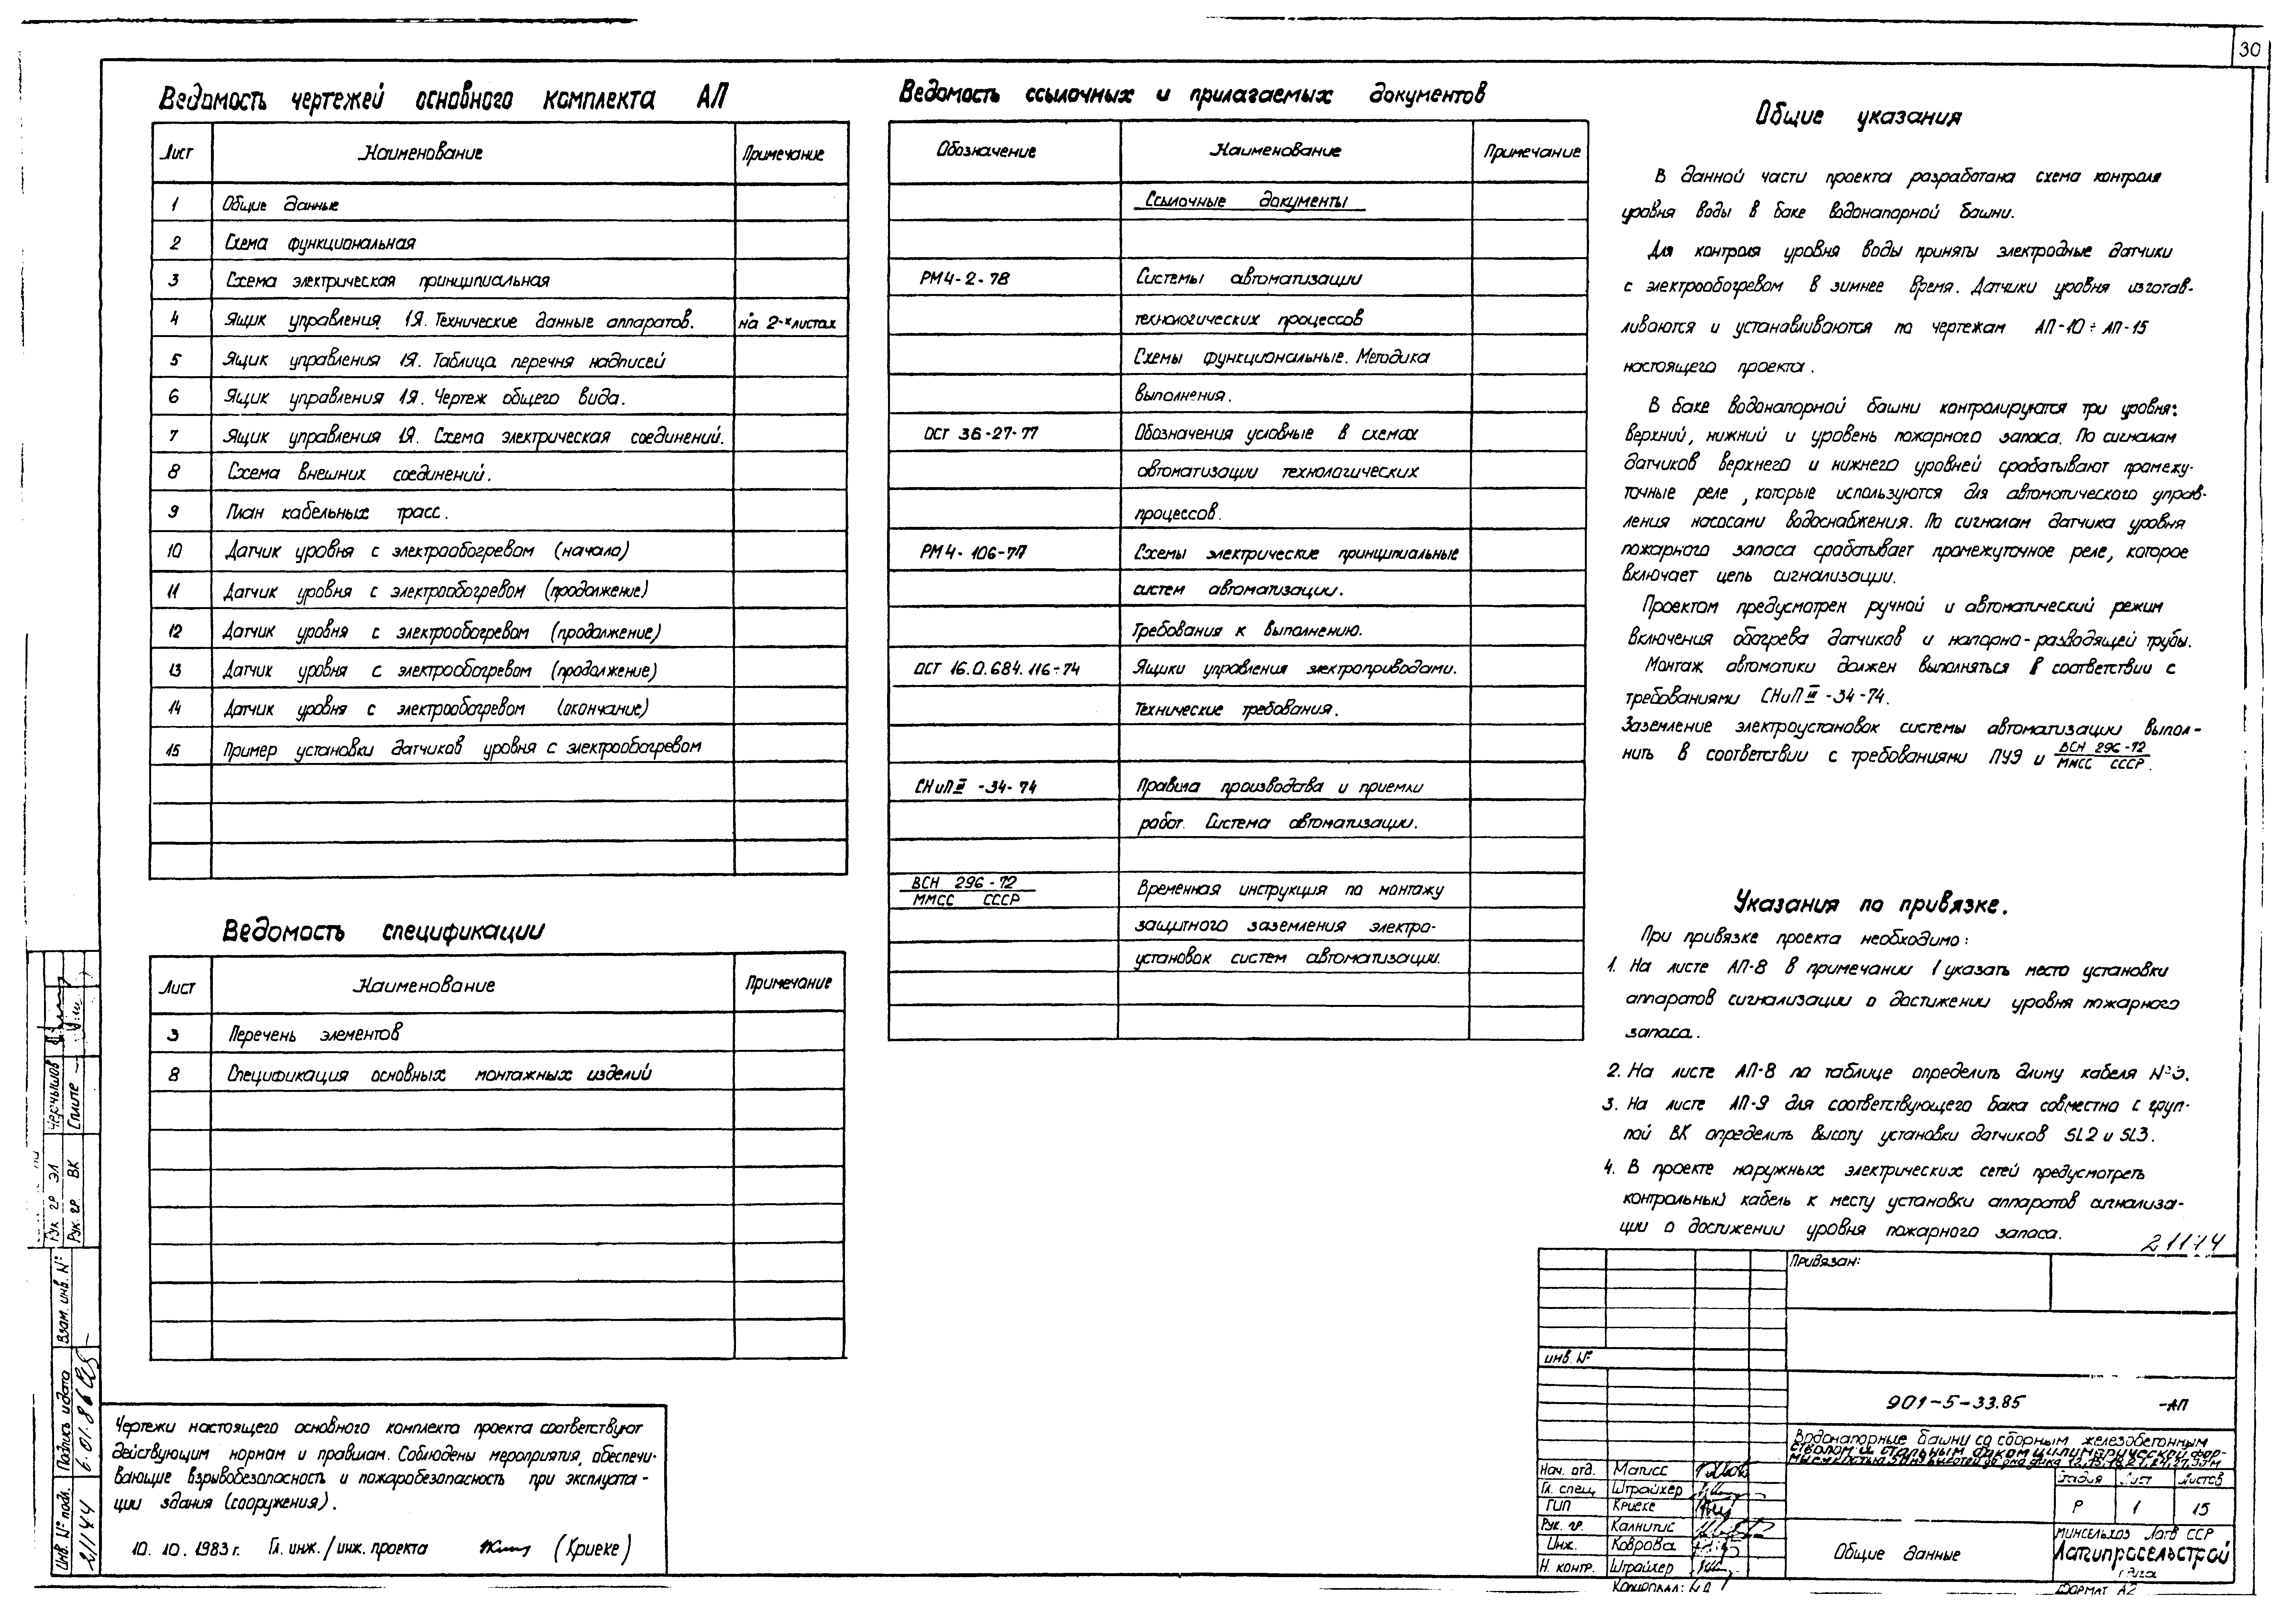 30
Ведомость чертежей основного комплекта АП
Лист Наименование Примечание
1 Общие данные
2 Схема функциональная
3 Схема электрическая принципиальная
4 Ящик управления 1Я. Технические данные аппаратов. на 2-х листах
5 Ящик управления 1Я. Таблица перечня надписей
6 Ящик управления 1Я. Чертеж общего вида.
7 Ящик управления 1Я. Схема электрическая соединений.
8 Схема внешних соединений.
9 План кабельных трасс.
10 Датчик уровня с электрообогревом (начало)
11 Датчик уровня с электрообогревом (продолжение)
12 Датчик уровня с электрообогревом (продолжение)
13 Датчик уровня с электрообогревом (продолжение)
14 Датчик уровня с электрообогревом (окончание)
15 Пример установки датчиков уровня с электрообогревом
Ведомость спецификации
Лист Наименование Примечание
3 Перечень элементов
8 Спецификация основных монтажных изделий
Чертежи настоящего основного комплекта проекта соответствуют
действующим нормам и правилам. Соблюдены мероприятия, обеспечи-
вающие взрывобезопасность и пожаробезопасность при эксплуата-
ции здания (сооружения).
10. 10. 1983 г. Гл. инж./инж. проекта (Криеке)
Ведомость ссылочных и прилагаемых документов
Обозначение Наименование Примечание
Ссылочные документы
РМ4-2-78 Системы автоматизации
технологических процессов
Схемы функциональные. Методика
выполнения.
ОСТ 36-27-77 Обозначения условные в схемах
автоматизации технологических
процессов.
РМ4-106-77 Схемы электрические принципиальные
систем автоматизации.
Требования к выполнению.
ОСТ 16.0.684.116-74 Ящики управления электроприводами.
Технические требования.
СНиП III -34-74 Правила производства и приемки
работ. Система автоматизации.
ВСН 296-72
ММСС СССР
Временная инструкция по монтажу
защитного заземления электро-
установок систем автоматизации.
Общие указания
В данной части проекта разработана схема контроля
уровня воды в баке водонапорной башни.
Для контроля уровня воды приняты электродные датчики
с электрообогревом в зимнее время. Датчики уровня изготав-
ливаются и устанавливаются по чертежам АП-10÷АП-15
настоящего проекта.
В баке водонапорной башни контролируются три уровня:
верхний, нижний и уровень пожарного запаса. По сигналам
датчиков верхнего и нижнего уровней срабатывают промежу-
точные реле, которые используются для автоматического управ-
ления насосами водоснабжения. По сигналам датчика уровня
пожарного запаса срабатывает промежуточное реле, которое
включает цепь сигнализации.
Проектом предусмотрен ручной и автоматический режим
включения обогрева датчиков и напорно-разводящей трубы.
Монтаж автоматики должен выполняться в соответствии с
требованиями СНиП III -34-74.
Заземление электроустановок системы автоматизации выпол-
нить в соответствии с требованиями ПУЭ и ВСН 296-72
ММСС СССР.
Указания по привязке.
При привязке проекта необходимо:
1. На листе АП-8 в примечании 1 указать место установки
аппаратов сигнализации о достижении уровня пожарного
запаса.
2. На листе АП-8 по таблице определить длину кабеля №3.
3. На листе АП-9 для соответствующего бака совместно с груп-
пой ВК определить высоту установки датчиков SL2 и SL3.
4. В проекте наружных электрических сетей предусмотреть
контрольный кабель к месту установки аппаратов сигнализа-
ции о достижении уровня пожарного запаса.
21144
Привязан:
инв. №
901-5-33.85 -АП
Водонапорные башни со сборным железобетонным
стволом и стальным баком цилиндрической фор-
Стадия Лист Листов
Р 1 15
Нач. отд. Матисс
Гл. спец. Штрайхер
ГИП Криеке
Рук. гр. Калнитис
Инж. Коврова
Н. контр. Штрайхер
Общие данные
Минсельхоз Латв ССР
Латгипросельстрой
г. Рига
Копировал:
Формат А2
Рук гр ЭЛ Чернышов
Рук. гр. ВК Сплите
Взам. инв. №
Подпись и дата 6.01.86
Инв. № подл. 21144